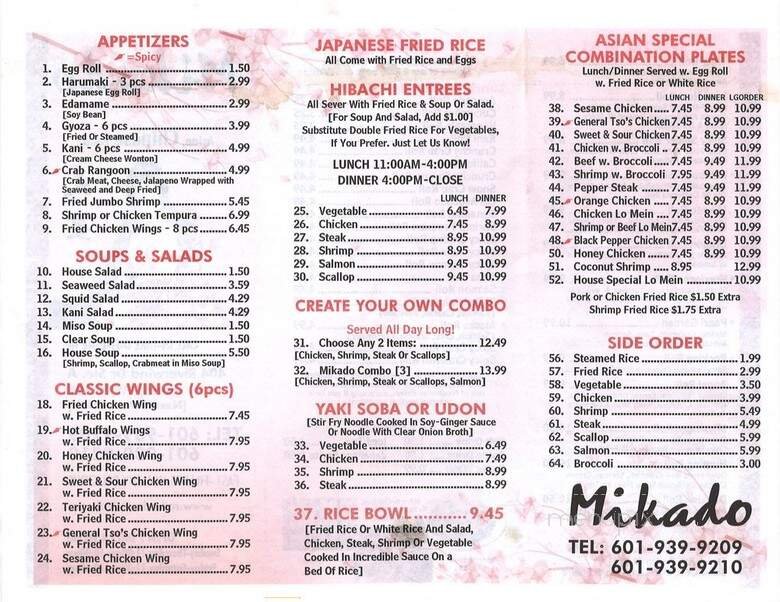 APPETIZERS
=Spicy
1. Egg Roll 1.50
2. Harumaki - 3 pcs 2.99
[Japanese Egg Roll]
3. Edamame 2.99
[Soy Bean]
4. Gyoza - 6 pcs 3.99
[Fried Or Steamed]
5. Kani - 6 pcs 4.99
[Cream Cheese Wonton]
6. Crab Rangoon 4.99
[Crab Meat, Cheese, Jalapeno Wrapped with
Seaweed and Deep Fried]
7. Fried Jumbo Shrimp 5.45
8. Shrimp or Chicken Tempura 6.99
9. Fried Chicken Wings - 8 pcs 6.45
SOUPS & SALADS
10. House Salad 1.50
11. Seaweed Salad 3.59
12. Squid Salad 4.29
13. Kani Salad 4.29
14. Miso Soup 1.50
15. Clear Soup 1.50
16. House Soup 5.50
[Shrimp, Scallop, Crabmeat in Miso Soup]
CLASSIC WINGS (6pcs)
18. Fried Chicken Wing
w. Fried Rice 7.45
19. Hot Buffalo Wings
w. Fried Rice 7.95
20. Honey Chicken Wing
w. Fried Rice 7.95
21. Sweet & Sour Chicken Wing
w. Fried Rice 7.95
22. Teriyaki Chicken Wing
w. Fried Rice 7.95
23. General Tso's Chicken Wing
w. Fried Rice 7.95
24. Sesame Chicken Wing
w. Fried Rice 7.95
JAPANESE FRIED RICE
All Come with Fried Rice and Eggs
HIBACHI ENTREES
All Sever With Fried Rice & Soup Or Salad.
[For Soup And Salad, Add $1.00]
Substitute Double Fried Rice For Vegetables,
If You Prefer. Just Let Us Know!
LUNCH 11:00AM-4:00PM
DINNER 4:00PM-CLOSE
LUNCH DINNER
25. Vegetable 6.45 7.99
26. Chicken 7.45 8.99
27. Steak 8.95 10.99
28. Shrimp 8.95 10.99
29. Salmon 9.45 10.99
30. Scallop 9.45 10.99
CREATE YOUR OWN COMBO
Served All Day Long!
31. Choose Any 2 Items: 12.49
[Chicken, Shrimp, Steak Or Scallops]
32. Mikado Combo [3] 13.99
[Chicken, Shrimp, Steak or Scallops, Salmon]
YAKI SOBA OR UDON
[Stir Fry Noodle Cooked In Soy-Ginger Sauce
Or Noodle With Clear Onion Broth]
33. Vegetable 6.49
34. Chicken 7.49
35. Shrimp 8.99
36. Steak 8.99
37. RICE BOWL 9.45
[Fried Rice Or White Rice And Salad,
Chicken, Steak, Shrimp Or Vegetable
Cooked In Incredible Sauce On a
Bed Of Rice]
ASIAN SPECIAL
COMBINATION PLATES
Lunch/Dinner Served w. Egg Roll
w. Fried Rice or White Rice
LUNCH DINNER LGORDER
38. Sesame Chicken 7.45 8.99 10.99
39. General Tso's Chicken 7.45 8.99 10.99
40. Sweet & Sour Chicken 7.45 8.99 10.99
41. Chicken w. Broccoli 7.45 8.99 10.99
42. Beef w. Broccoli 7.45 9.49 11.99
43. Shrimp w. Broccoli 7.95 9.49 11.99
44. Pepper Steak 7.45 9.49 11.99
45. Orange Chicken 7.45 8.99 10.99
46. Chicken Lo Mein 7.45 8.99 10.99
47. Shrimp or Beef Lo Mein 7.45 8.99 10.99
48. Black Pepper Chicken 7.45 8.99 10.99
50. Honey Chicken 7.45 8.99 10.99
51. Coconut Shrimp 8.95 12.99
52. House Special Lo Mein 10.99
Pork or Chicken Fried Rice $1.50 Extra
Shrimp Fried Rice $1.75 Extra
SIDE ORDER
56. Steamed Rice 1.99
57. Fried Rice 2.99
58. Vegetable 3.50
59. Chicken 3.99
60. Shrimp 5.49
61. Steak 4.99
62. Scallop 5.99
63. Salmon 5.99
64. Broccoli 3.00
Mikado
TEL: 601-939-9209
601-939-9210